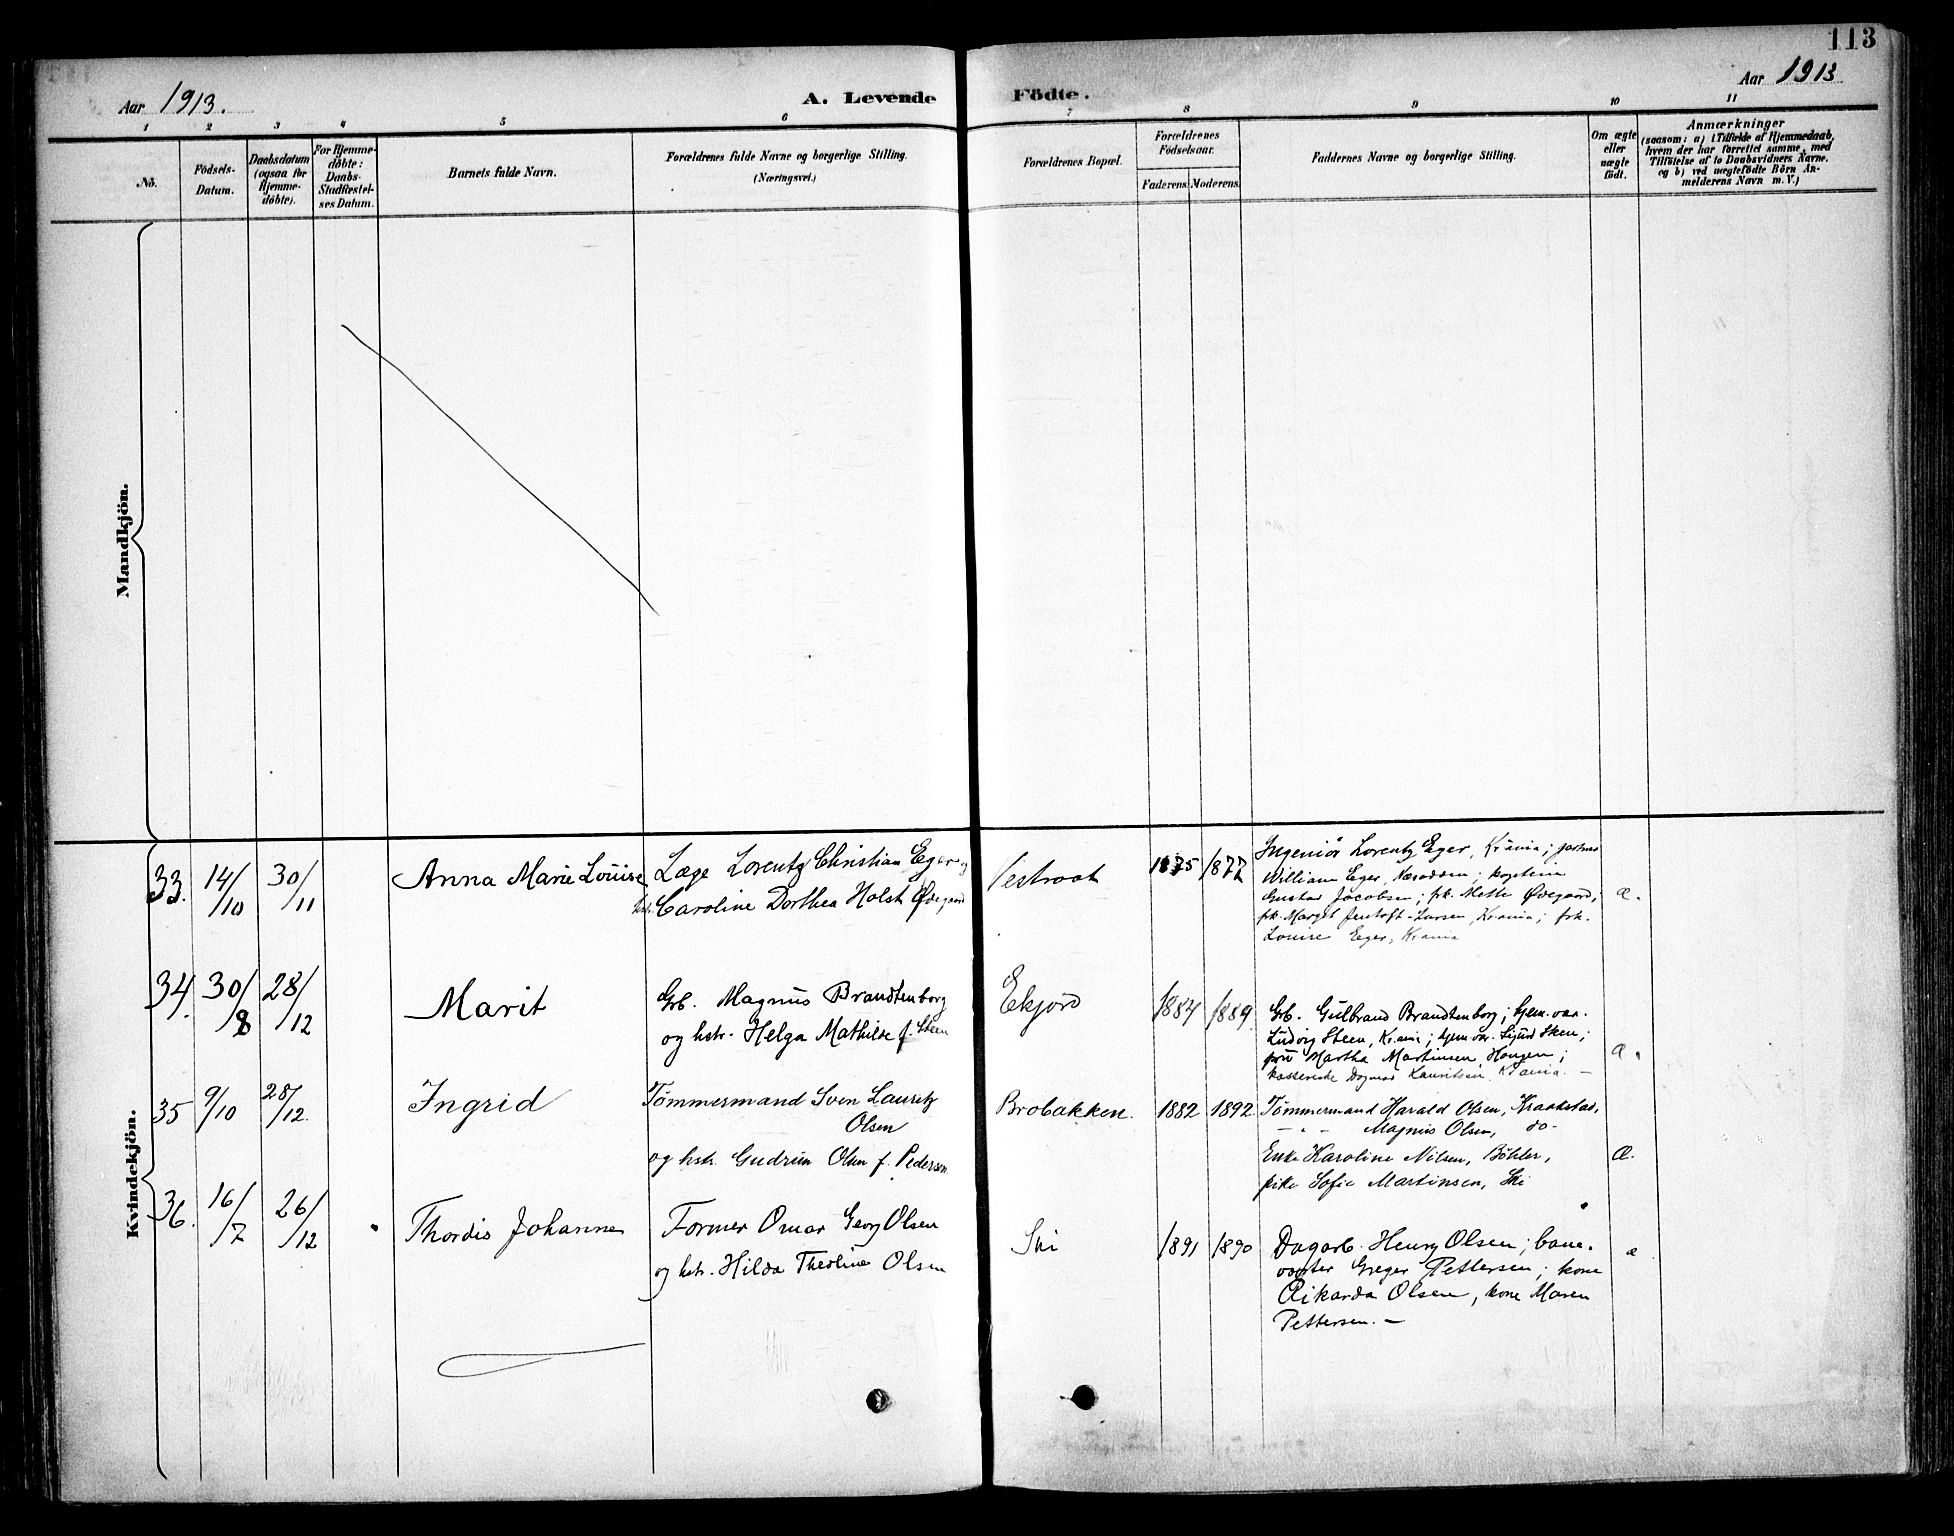 113
Aar 1913.
A. Levende Födte.
Aar 1913
1 2 3 4 5 6 7 8 9 10 11
No.
Födsels-
Datum.
Daabsdatum
(ogsaa for
Hjemme-
døbte).
For Hjemme-
døbte:
Daabs-
Stadfæstel-
ses Datum.
Barnets fulde Navn.
Forældrenes fulde Navne og borgerlige Stilling.
(Næringsvei.)
Forældrenes Bopæl.
Forældrenes
Födselsaar.
Faderens. Moderens.
Faddernes Navne og borgerlige Stilling.
Om ægte
eller
uægte
födt.
Anmærkninger
(saasom: a) i Tilfælde af Hjemmedaab,
hvem der har forrettet samme, med
Tilføielse af to Daabsvidners Navne.
og b) ved uægtefödte Börn An-
melderens Navn m. V.)
Mandkjön.
Kvindekjön.
33. 14/10 30/11
Anna Marie Louise
Læge Lorentz Christian Eger og
hstr. Caroline Dorthea Holst Ødegaard
Vestraat
1875 1877
Ingeniör Lorentz Eger, Krania;
William Eger, Næsodden; kaptein
Gustav Jacobsen; frk. Mette Ødegaard;
frk. Margit Jentoft-Larsen, Krania; frk.
Louise Eger, Krania
æ.
34. 30/8 28/12
Marit
Grb. Magnus Brandtenborg
og hstr. Helga Mathilde f. Steen
Ekjord
1884 1889
Grb. Gulbrand Brandtenborg; hjem.vær.
Ludvig Steen, Krania; hjemvær. Sigurd Steen;
fru Martha Martinsen, Haugen;
kassererske Dagmar Lauritsen, Krania. -
æ.
35 9/10 28/12.
Ingrid
Tömmermand Sven Lauritz
Olsen
og hstr. Gudrun Olsen f. Pedersen
Brobakken.
1882 1892
Tömmermand Harald Olsen, Kraakstad,
- " - Magnus Olsen, do-
Enke Karoline Nilsen, Böhler,
pike Sofie Martinsen, Ski
Æ.
36. 16/7 26/12
Thordis Johanne
Former Omar Georg Olsen
og hstr. Hilda Theoline Olsen
Ski
1891 1890
Dagarb. Henry Olsen; bane-
vogter Greger Pettersen; kone
Rikarda Olsen, kone Maren
Pettersen. -
æ